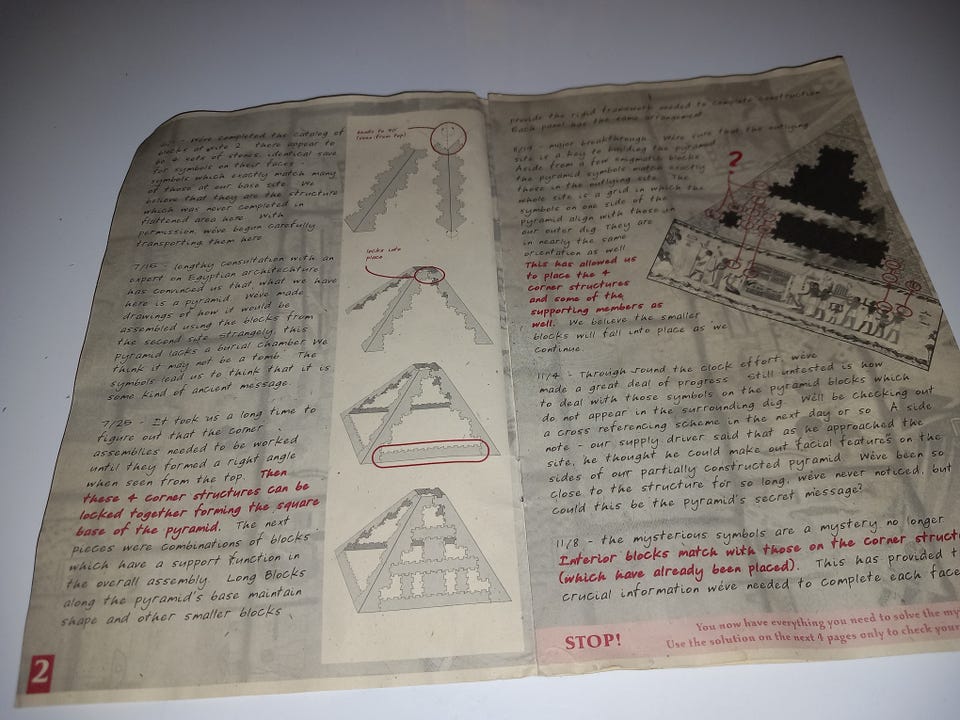 We've completed the catalog of
blocks at site 2. There appear to
be 4 sets of stones, identical save
for symbols on their faces -
symbols which exactly match many
of those at our base site. We
believe that they are the structure
which was never completed in
flattened area here. With
permission, we've begun carefully
transporting them here.
7/15 - lengthy consultation with an
expert on Egyptian architechture
has convinced us that what we have
here is a pyramid. We've made
drawings of how it would be
assembled using the blocks from
the second site. Strangely, this
pyramid lacks a burial chamber. We
think it may not be a tomb. The
symbols lead us to think that it is
some kind of ancient message.
7/25 - It took us a long time to
figure out that the corner
assemblies needed to be worked
until they formed a right angle
when seen from the top. Then
these 4 corner structures can be
locked together forming the square
base of the pyramid. The next
pieces were combinations of blocks
which have a support function in
the overall assembly. Long Blocks
along the pyramid's base maintain
shape and other smaller blocks
2
bends to 90°
(seen from top)
locks into
place
provide the rigid framework needed to complete construction.
Each panel has the same arrangement.
8/19 - major breakthrough. We're sure that the outlying
site is a key to building the pyramid.
Aside from a few enigmatic blocks,
the pyramid symbols match exactly
those in the outlying site. The
whole site is a grid in which the
symbols on one side of the
pyramid align with these in
our outer dig. They are
in nearly the same
orientation as well.
This has allowed us
to place the 4
corner structures
and some of the
supporting members as
well. We believe the smaller
blocks will fall into place as we
continue.
?
11/4 - Through round the clock effort, we've
made a great deal of progress. Still untested is how
to deal with those symbols on the pyramid blocks which
do not appear in the surrounding dig. We'll be checking out
a cross referencing scheme in the next day or so. A side
note - our supply driver said that as he approached the
site, he thought he could make out facial features on the
sides of our partially constructed pyramid. We've been so
close to the structure for so long, we've never noticed, but
could this be the pyramid's secret message?
11/8 - the mysterious symbols are a mystery no longer.
Interior blocks match with those on the corner struct
(which have already been placed). This has provided t
crucial information we've needed to complete each face
STOP!
You now have everything you need to solve the my
Use the solution on the next 4 pages only to check your